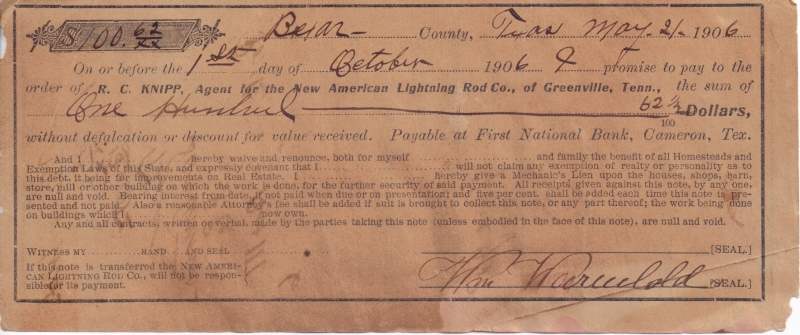 $100. 62/xx Bexar County, Texas May 21 1906
On or before the 1st day of October 1906 I promise to pay to the
order of R. C. KNIPP, Agent for the New American Lightning Rod Co., of Greenville, Tenn., the sum of
One Hundred 62 ½/100 Dollars,
without defalcation or discount for value received. Payable at First National Bank, Cameron, Tex.
And I hereby waive and renounce, both for myself and family the benefit of all Homesteads and
Exemption Laws of this State, and expressly covenant that I will not claim any exemption of realty or personality as to
this debt, it being for improvements on Real Estate. I hereby give a Mechanic's Lien upon the houses, shops, barn,
store, mill or other building on which the work is done, for the further security of said payment. All receipts given against this note, by any one,
are null and void. Bearing interest from date, if not paid when due or on presentation; and five per cent. shall be added each time this note is pre-
sented and not paid. Also a reasonable Attorney's fee shall be added if suit is brought to collect this note, or any part thereof; the work being done
on buildings which I now own.
Any and all contracts, written or verbal, made by the parties taking this note (unless embodied in the face of this note), are null and void.
WITNESS MY HAND AND SEAL [SEAL.]
If this note is transferred the NEW AMERI-
CAN LIGHTNING ROD CO., will not be respon-
sible for its payment. Wm [SEAL.]